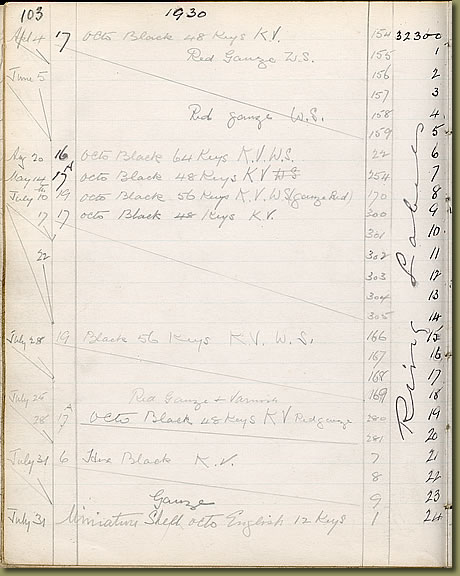 103 1930
April 4 17 Octo Black 48 Keys K.V. 154 32300
Red Gauze W.S. 155 1
June 5 156 2
157 3
Red gauze W.S. 158 4
159 5
Aug 20 16 Octo Black 64 Keys K.V. W.S. 22 6
May 14 17A Octo Black 48 Keys K V 254 7
July 10 19 Octo Black 56 Keys K.V. W.S (gauze Red) 170 8
17 17 Octo Black 48 Keys K.V. 300 9
301 10
22 302 11
303 12
304 13
305 14
July 28 19 Black 56 Keys K.V. W.S. 166 15
167 16
168 17
July 25 Red Gauze + Varnish 169 18
28 17A Octo Black 48 Keys K V Red gauze 280 19
281 20
July 31 6 Black K.V. 7 21
8 22
Gauze 9 23
July 31 Miniature Shell Octo English 12 Keys 1 24
Ring